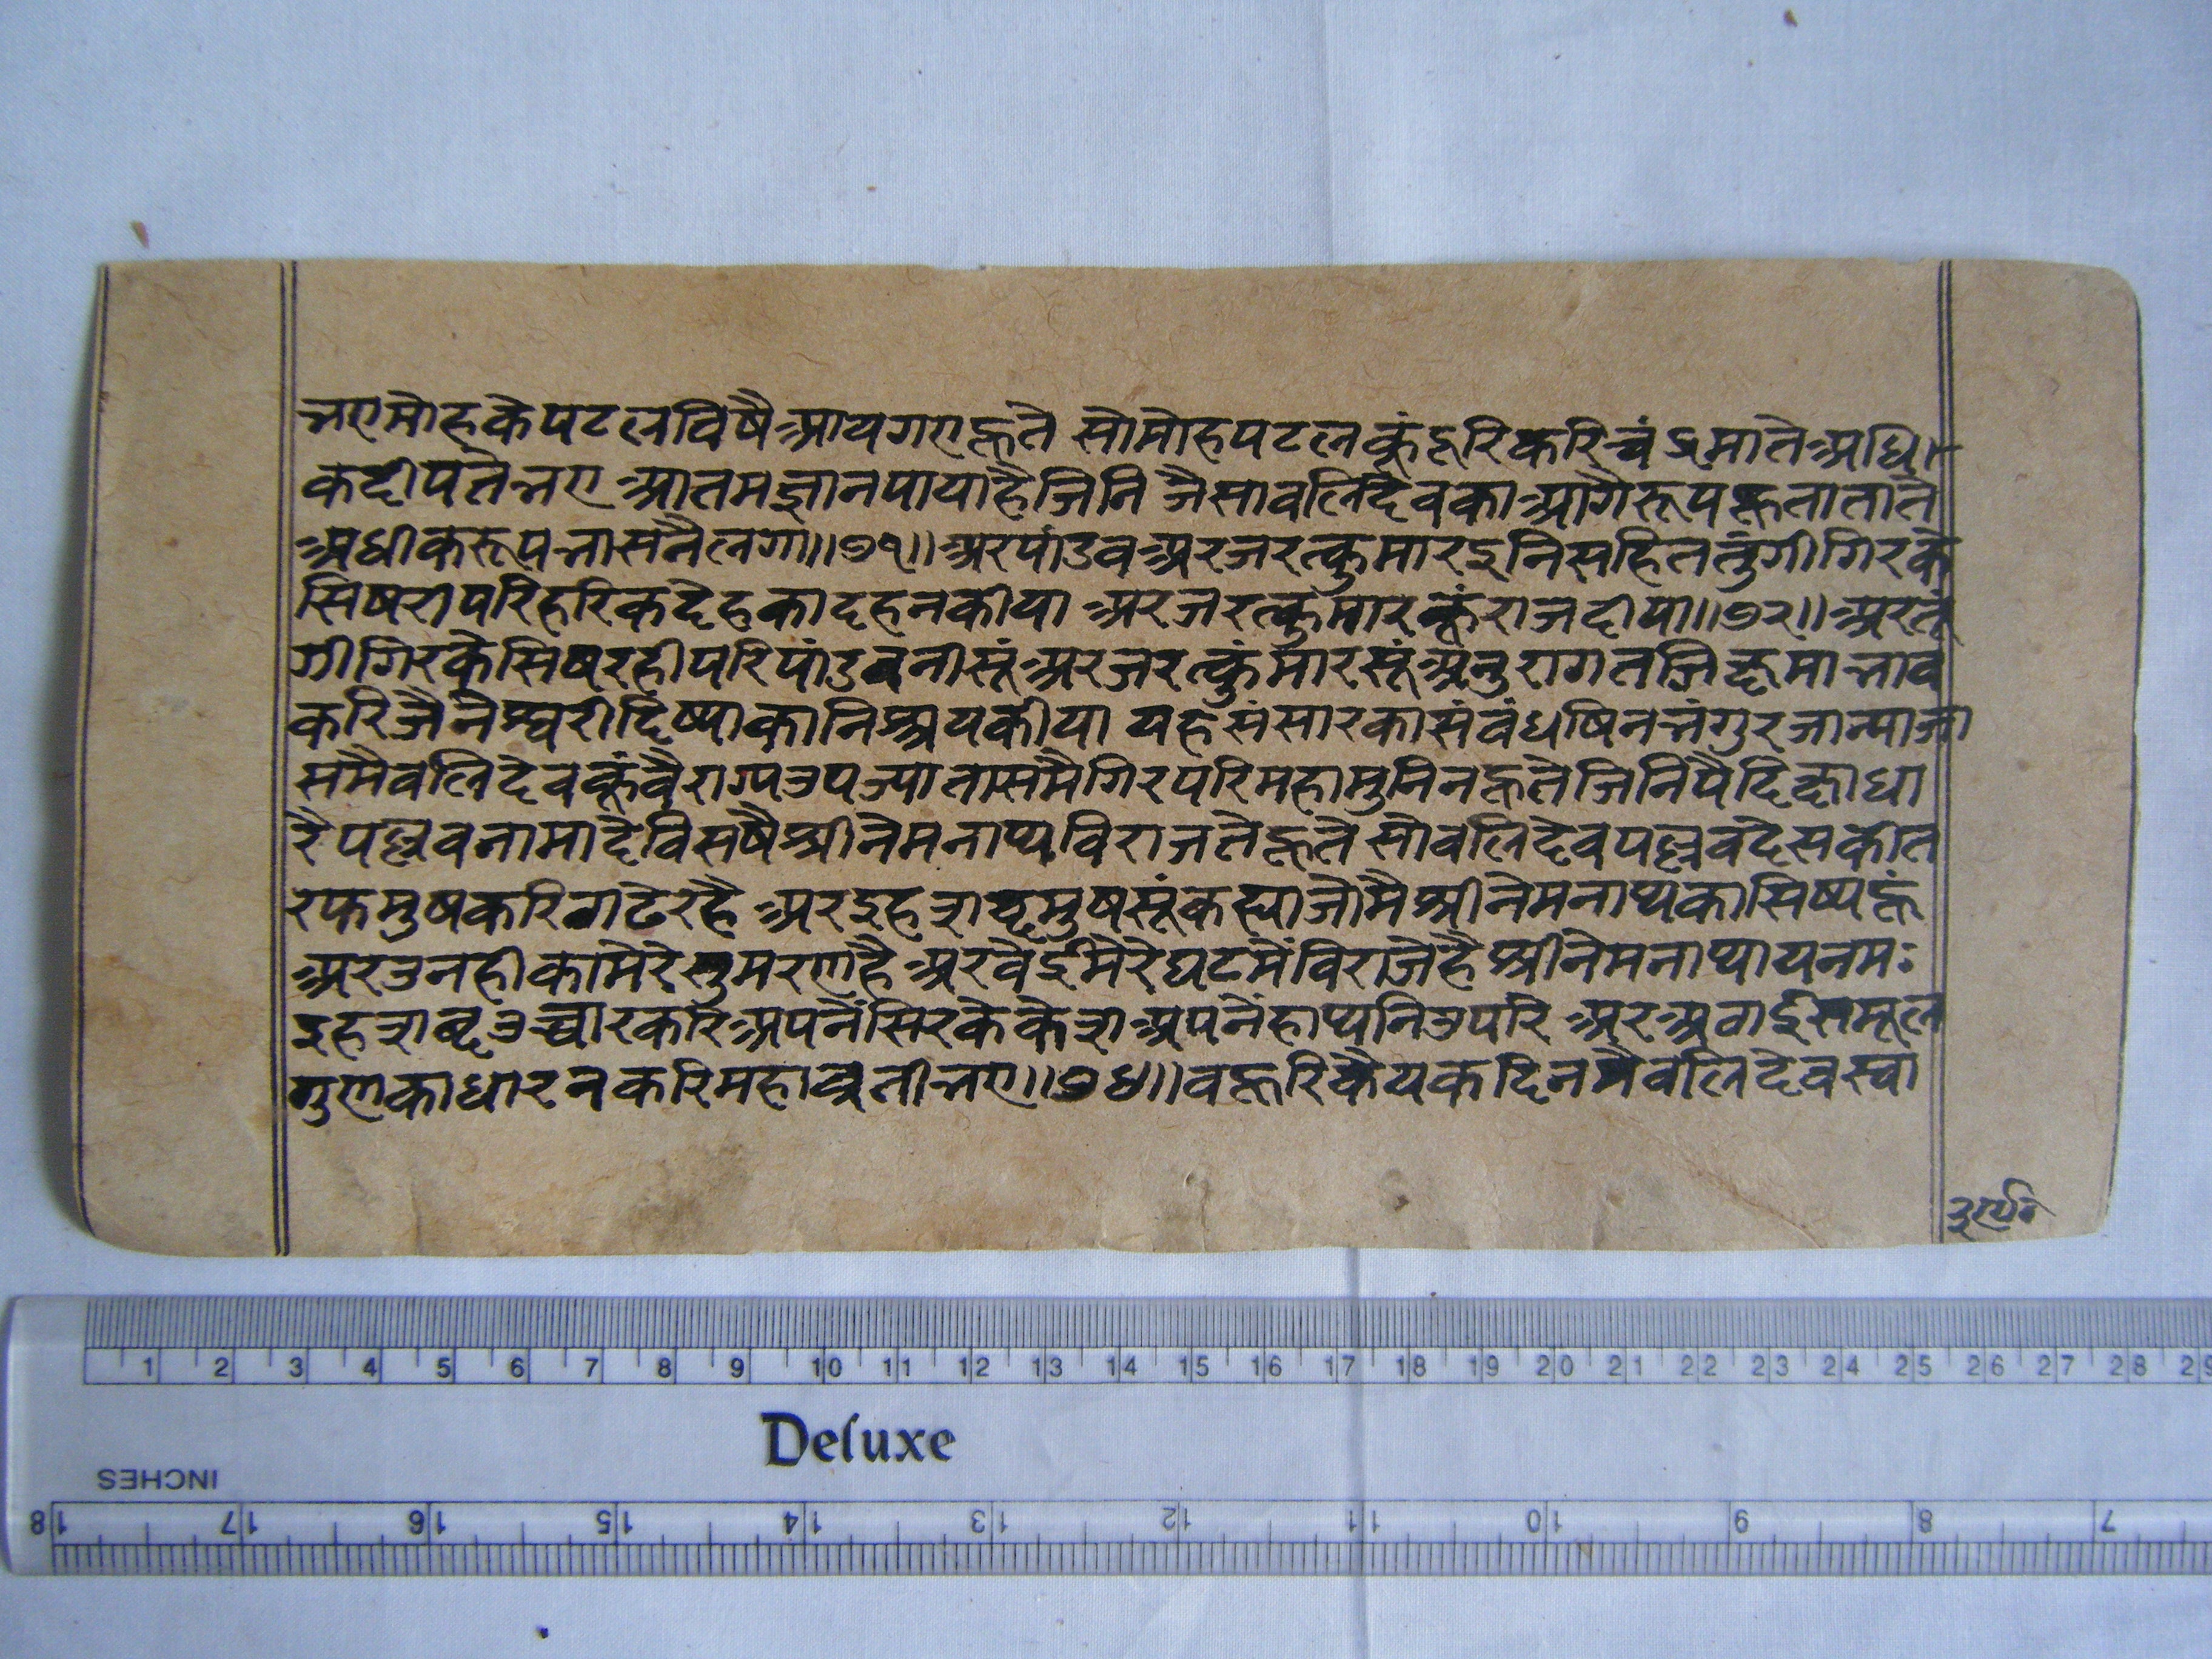 भए मोह के पटल विषै आय गए हुते सो मोह पटल कूं दूरि करि चंद्रमा तै अधि
क दीपते भए आतम ज्ञान पाया है जिनि जैसा वलिदेव का आगै रूप हुता ता तै
अधीक रूप भासनै लगा॥७१॥ अर पांडव अर जरत्कुमार इनि सहित तुंगीगिर के
सिषरी परि हरि क देह का दहन कीया अर जरत्कुमार कूं राज दीया॥७२॥ अर तुं
गीगिर के सिषर ही परि पांडवनी सूं अर जरत्कुंमार सूं अनुराग तजि क्षमा भाव
करि जैनेस्वरी दिष्या का निश्चय कीया यह संसार का संवंध षिन भंगुर जान्या जा
समै वलिदेव कूं वैराग्य उपज्या ता समै गिर परि महामुनि न हुते जिनि पै दिक्षा धा
रै पल्लव नामा दैविस षै श्री नेमनाथ्य विराजते हुते सो वलिदेव पल्लव देस की त
रफ मुष करि ठाढे रहै अर इह शब्द मुष सूं कह्या जो मै श्री नेमनाथ्य का सिष्य हूं
अर उनही का मेरे सुमरण है अर वेई मेरे घट मैं विराजे है श्री नेमनाथाय नमः
इह शब्द उच्चार करि अपनैं सिर के केश अपनैं हाथ्यनि उपारि अर अठाईस मूल
गुण का धारन करि महाव्रती भए॥७४॥ वहुरि कै यक दिन मै वलिदेव स्वा
1 2 3 4 5 6 7 8 9 10 11 12 13 14 15 16 17 18 19 20 21 22 23 24 25 26 27 28 29
Deluxe
INCHES
18 17 16 15 14 13 12 11 10 9 8 7